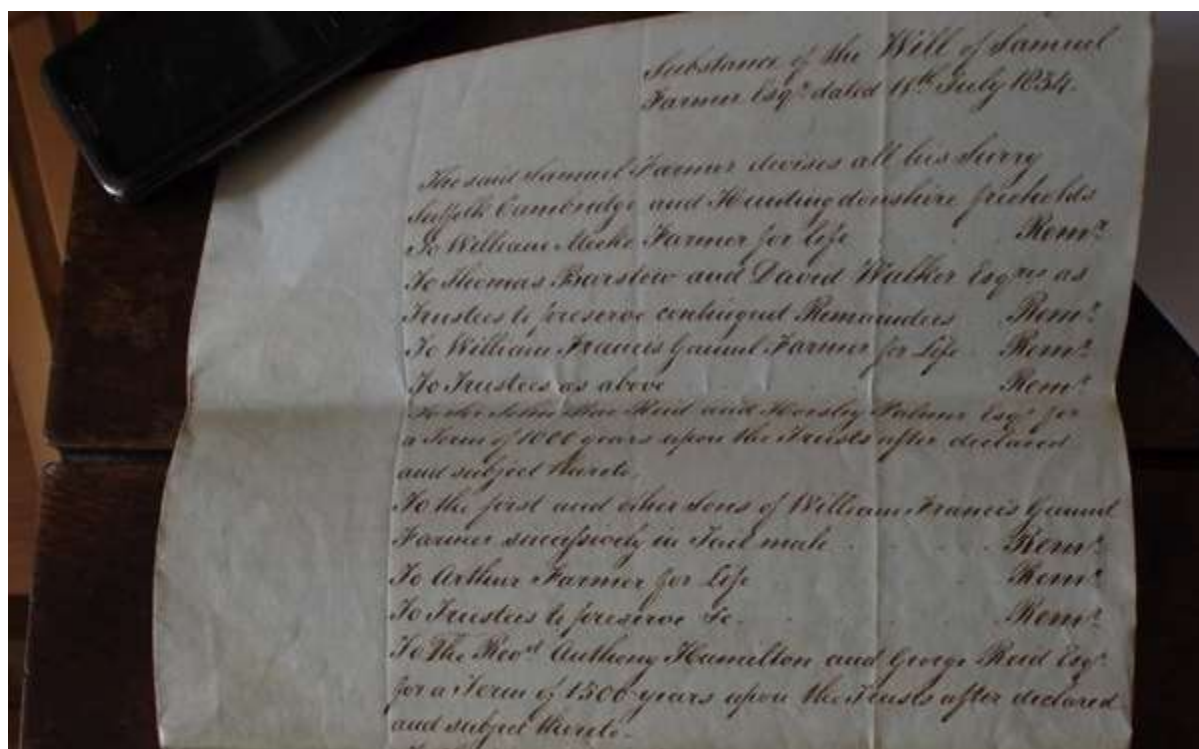 Substance of the Will of Samuel
Farmer Esqr. dated 11th July 1834.
The said Samuel Farmer devises all his Surry
Suffolk Cambridge and Huntingdonshire freeholds
To William Meeke Farmer for life . . Remr.
To Thomas Barstow and David Walker Esqres as
Trustees to preserve contingent Remainders Remr.
To William Francis Gamul Farmer for Life . Remr.
To Trustees as above . . . . Remr.
To Sir John Rae Reid and Horsley Palmer Esqr. for
a Term of 1000 years upon the Trusts after declared
and subject thereto.
To the first and other sons of William Francis Gamul
Farmer successively in Tail male . . . . Remr.
To Arthur Farmer for Life Remr.
To Trustees to preserve &c. . . . Remr.
To The Revd. Anthony Hamilton and George Reid Esqr.
for a Term of 1500 years upon the Trusts after declared
and subject thereto.